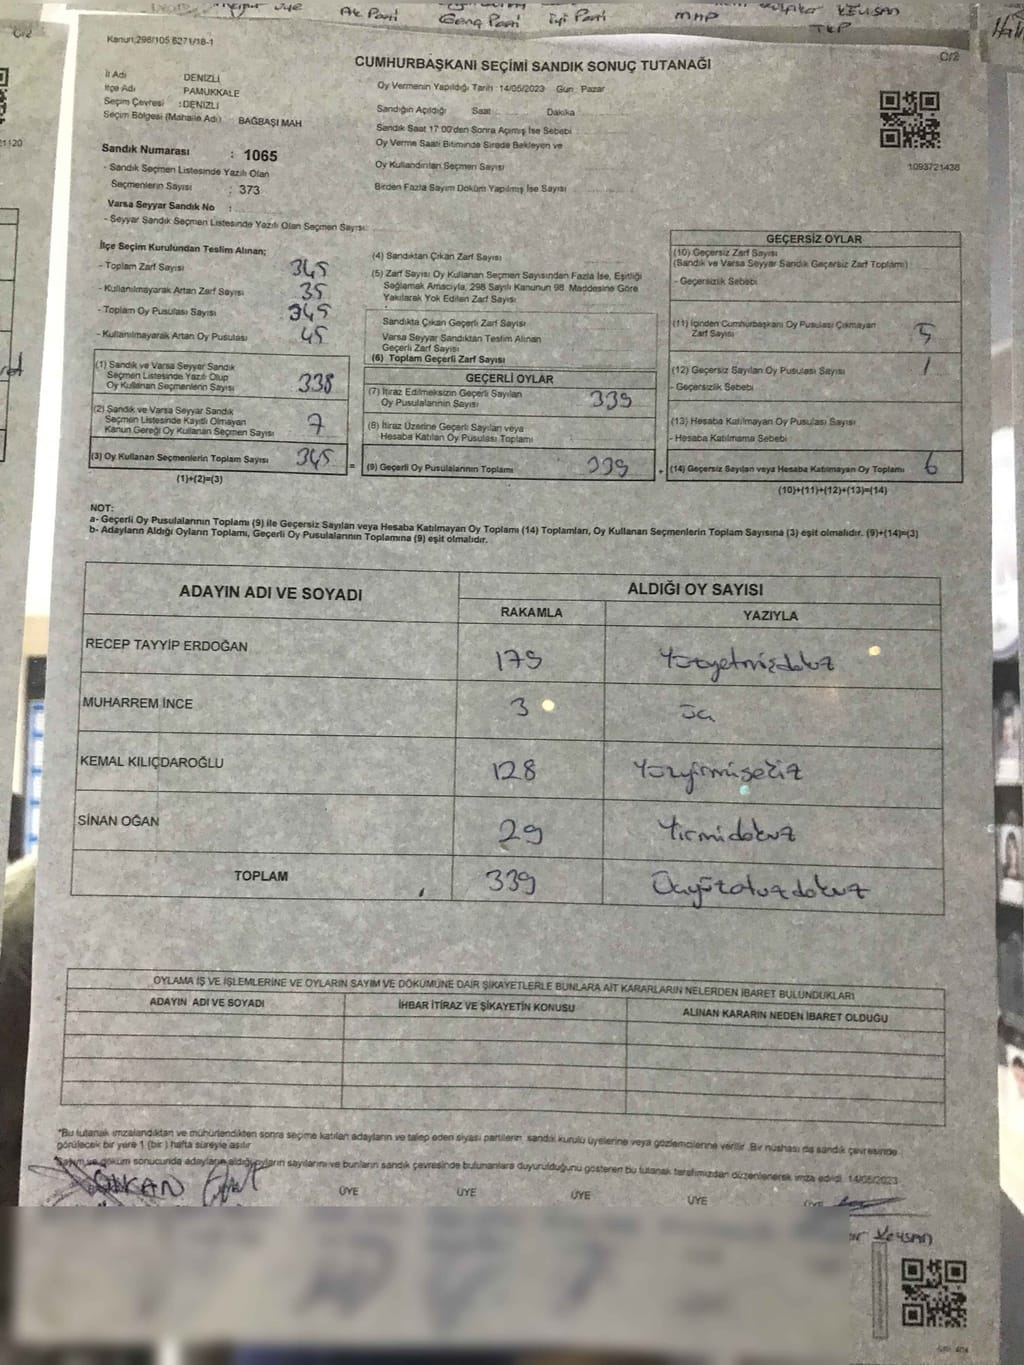 Ak Parti Genç Parti İyi Parti MHP KEYSAN
TKP
Kanun:298/105 6271/18-1
C/2
CUMHURBAŞKANI SEÇİMİ SANDIK SONUÇ TUTANAĞI
İl Adı DENİZLİ
İlçe Adı PAMUKKALE
Seçim Çevresi :DENİZLİ
Seçim Bölgesi (Mahalle Adı) : BAĞBAŞI MAH
Oy Vermenin Yapıldığı Tarih 14/05/2023 Gün : Pazar
Sandığın Açıldığı Saat Dakika
Sandık Saat 17:00'den Sonra Açımış İse Sebebi
Oy Verme Saati Bitiminde Sırada Bekleyen ve
Oy Kullandırılan Seçmen Sayısı
Birden Fazla Sayım Döküm Yapılmış İse Sayısı
1093721436
Sandık Numarası : 1065
- Sandık Seçmen Listesinde Yazılı Olan
Seçmenlerin Sayısı : 373
Varsa Seyyar Sandık No :
- Seyyar Sandık Seçmen Listesinde Yazılı Olan Seçmen Sayısı:
İlçe Seçim Kurulundan Teslim Alınan;
- Toplam Zarf Sayısı 345
- Kullanılmayarak Artan Zarf Sayısı 35
- Toplam Oy Pusulası Sayısı 345
- Kullanılmayarak Artan Oy Pusulası 45
(1) Sandık ve Varsa Seyyar Sandık
Seçmen Listesinde Yazılı Olup
Oy Kullanan Seçmenlerin Sayısı 338
(2) Sandık ve Varsa Seyyar Sandık
Seçmen Listesinde Kayıtlı Olmayan
Kanun Gereği Oy Kullanan Seçmen Sayısı 7
(3) Oy Kullanan Seçmenlerin Toplam Sayısı 345
(1)+(2)=(3)
(4) Sandıktan Çıkan Zarf Sayısı
(5) Zarf Sayısı Oy Kullanan Seçmen Sayısından Fazla İse, Eşitliği
Sağlamak Amacıyla, 298 Sayılı Kanunun 98. Maddesine Göre
Yakılarak Yok Edilen Zarf Sayısı
Sandıkta Çıkan Geçerli Zarf Sayısı
Varsa Seyyar Sandıktan Teslim Alınan
Geçerli Zarf Sayısı
(6) Toplam Geçerli Zarf Sayısı
GEÇERLİ OYLAR
(7) İtiraz Edilmeksizin Geçerli Sayılan
Oy Pusulalarının Sayısı 339
(8) İtiraz Üzerine Geçerli Sayılan veya
Hesaba Katılan Oy Pusulası Toplamı
= (9) Geçerli Oy Pusulalarının Toplamı 339
GEÇERSİZ OYLAR
(10) Geçersiz Zarf Sayısı
(Sandık ve Varsa Seyyar Sandık Geçersiz Zarf Toplamı)
- Geçersizlik Sebebi
(11) İçinden Cumhurbaşkanı Oy Pusulası Çıkmayan
Zarf Sayısı 5
(12) Geçersiz Sayılan Oy Pusulası Sayısı 1
- Geçersizlik Sebebi
(13) Hesaba Katılmayan Oy Pusulası Sayısı
- Hesaba Katılmama Sebebi
+ (14) Geçersiz Sayılan veya Hesaba Katılmayan Oy Toplamı 6
(10)+(11)+(12)+(13)=(14)
NOT:
a- Geçerli Oy Pusulalarının Toplamı (9) ile Geçersiz Sayılan veya Hesaba Katılmayan Oy Toplamı (14) Toplamları, Oy Kullanan Seçmenlerin Toplam Sayısına (3) eşit olmalıdır. (9)+(14)=(3)
b- Adayların Aldığı Oyların Toplamı, Geçerli Oy Pusulalarının Toplamına (9) eşit olmalıdır.
ADAYIN ADI VE SOYADI ALDIĞI OY SAYISI
RAKAMLA YAZIYLA
RECEP TAYYİP ERDOĞAN 179 Yüzyetmişdokuz
MUHARREM İNCE 3 üç
KEMAL KILIÇDAROĞLU 128 Yüzyirmisekiz
SİNAN OĞAN 29 Yirmidokuz
TOPLAM 339 Üçyüzotuzdokuz
OYLAMA İŞ VE İŞLEMLERİNE VE OYLARIN SAYIM VE DÖKÜMÜNE DAİR ŞİKAYETLERLE BUNLARA AİT KARARLARIN NELERDEN İBARET BULUNDUKLARI
ADAYIN ADI VE SOYADI İHBAR İTİRAZ VE ŞİKAYETİN KONUSU ALINAN KARARIN NEDEN İBARET OLDUĞU
*Bu tutanak imzalandıktan ve mühürlendikten sonra seçime katılan adayların ve talep eden siyasi partilerin sandık kurulu üyelerine veya gözlemcilerine verilir. Bir nüshası da sandık çevresinde
görülecek bir yere 1 (bir) hafta süreyle asılır.
Sayım ve döküm sonucunda adayların aldığı oyların sayılarını ve bunların sandık çevresinde bulunanlara duyurulduğunu gösteren bu tutanak tarafımızdan düzenlenerek imza edildi. 14/05/2023
ÜYE ÜYE ÜYE ÜYE ÜYE
KEYSAN